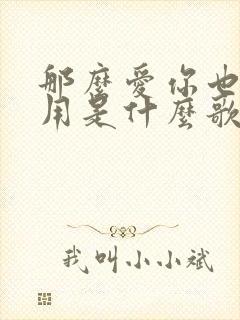 那麼愛你也
用是什麼歌
我叫小小斌